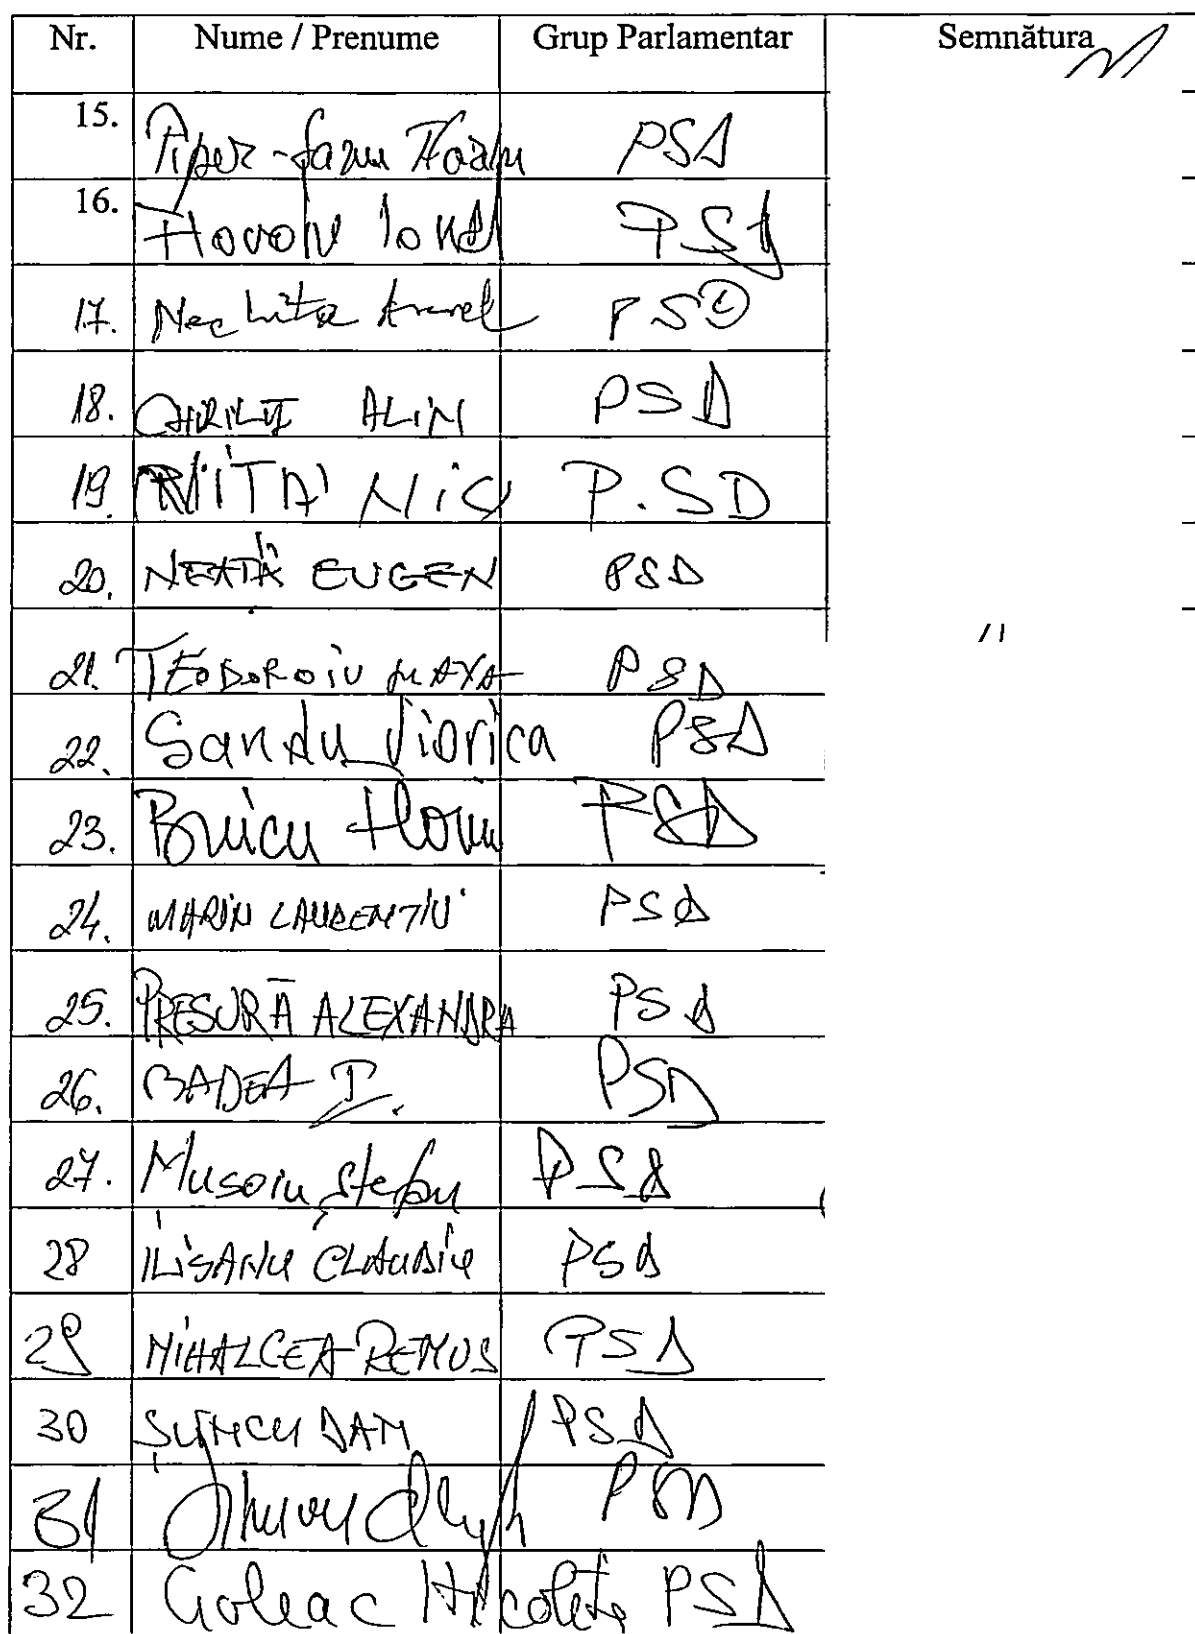 Nr. Nume / Prenume Grup Parlamentar Semnătura
15. Piper- PSD
16. Hovolu Ionel PSD
17. Nechita Aurel PSD
18. CHIRILĂ ALIN PSD
19. MITA NIC P.SD
20. NEAȚĂ EUGEN PSD
21. TEODOROIU MAYA PSD
22. Sandu Viorica PSD
23. Buicu Florin PSD
24. MARIN LAURENTIU PSD
25. PRESURĂ ALEXANDRA PSD
26. BADEA I. PSD
27. Musoiu Ștefan PSD
28 ILISANU CLAUDIU PSD
29 MIHALCEA REMUS PSD
30 ȘUNCU DAN PSD
31 PSD
32 Goleac Nicoleta PSD